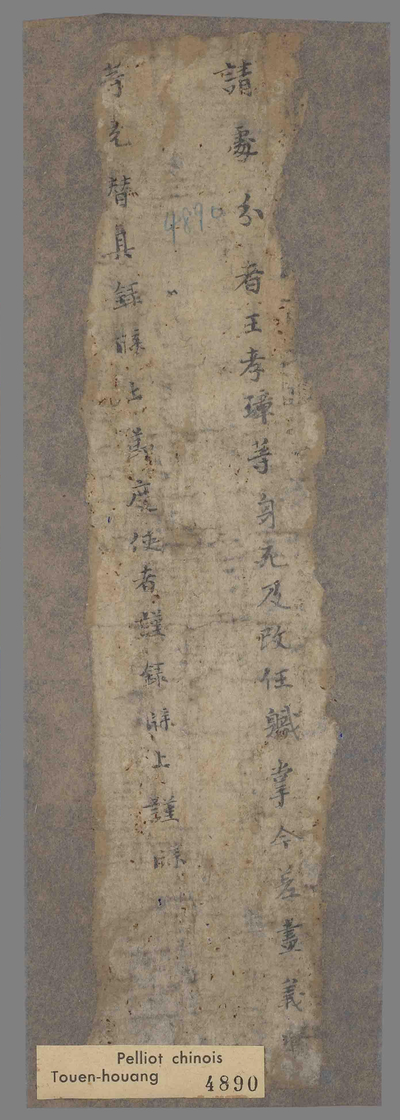 請處分者王孝璋等身死及改任軄掌今差畫義
等充替具録牒上節度使者謹録牒上謹牒
4890
Pelliot chinois
Touen-houang 4890